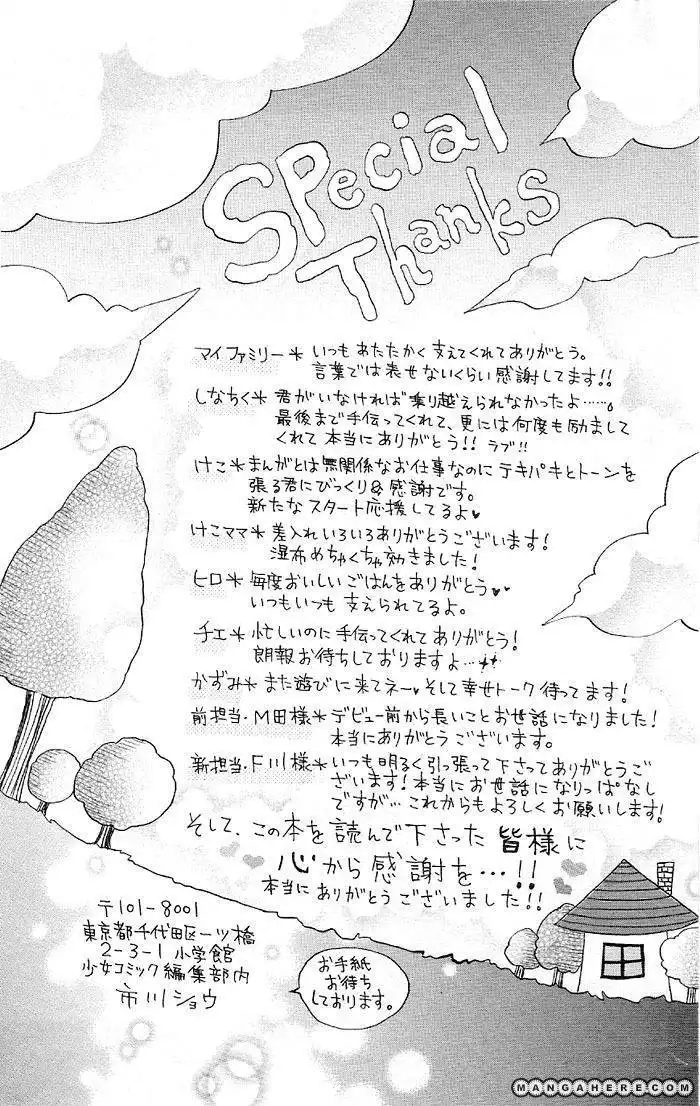 Special
Thanks
マイファミリー＊いつもあたたかく支えてくれてありがとう。
言葉では表せないくらい感謝してます!!
しなちく＊君がいなければ乗り越えられなかったよ……。
最後まで手伝ってくれて、更には何度も励まして
くれて本当にありがとう!! ラブ!!
けこ＊まんがとは無関係なお仕事なのにテキパキとトーンを
張る君にびっくり&感謝です。
新たなスタート応援してるよ♥
けこママ＊差入れいろいろありがとうございます!
湿布めちゃくちゃ効きました!
ヒロ＊毎度おいしいごはんをありがとう♥♥
いつもいつも支えられてるよ。
チエ＊忙しいのに手伝ってくれてありがとう!
朗報お待ちしておりますよ…!!
かずみ＊また遊びに来てネー♥そして幸せトーク待ってます!
前担当・M田様＊デビュー前から長いことお世話になりました!
本当にありがとうございます。
新担当・F川様＊いつも明るく引っ張って下さってありがとうご
ざいます!本当にお世話になりっぱなし
ですが…これからもよろしくお願いします!
そして、この本を読んで下さった皆様に
心から感謝を…!!
本当にありがとうございました!!
〒101-8001
東京都千代田区一ツ橋
2-3-1 小学館
少女コミック編集部内
市川ショウ
お手紙
お待ち
しております。
MANGAHERE.COM